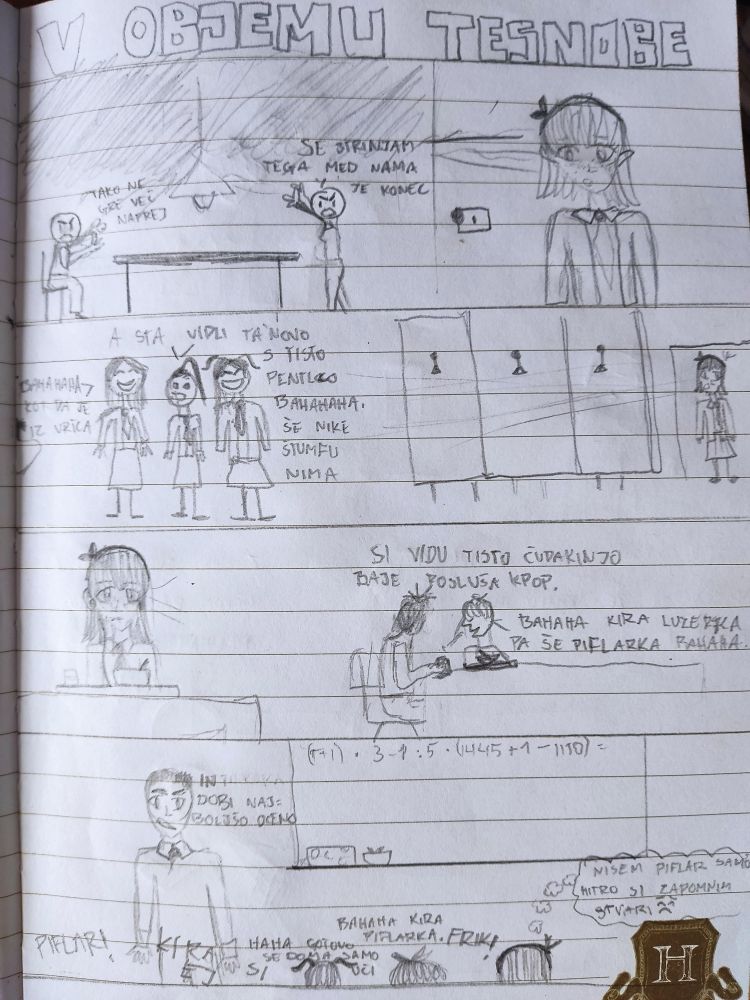 V OBJEMU TESNOBE
TAKO NE
GRE VEČ
NAPREJ
SE STRINJAM
TEGA MED NAMA
JE KONEC
A STA VIDLI TA NOVO
S TISTO
PENTLKO
BAHAHAHA.
ŠE NIKE
ŠTUMFU
NIMA
BAHAHAHA
KOT DA JE
IZ VRTCA
SI VIDU TISTO ČUDAKINJO
BAJE POSLUŠA KPOP.
BAHAHA KIRA LUZERKA
PA ŠE PIFLARKA BAHAHA.
3-1 : 5 · (1445+1-1110) =
IN
DOBI NAJ-
BOLJŠO OCENO
NISEM PIFLAR SAMO
HITRO SI ZAPOMNIM
STVARI
PIFLAR!
BAHAHA KIRA
PIFLARKA.
FRIK!
HAHA GOTOVO
SE DOMA SAMO
UČI
H